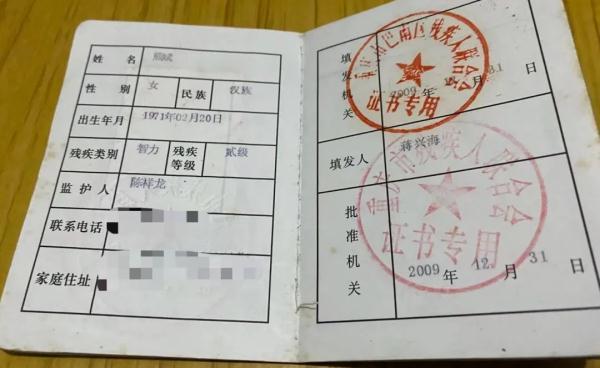 姓 名 熊斌
性 别 女 民族 汉族
出生年月 1971年02月20日
残疾类别 智力 残疾等级 贰级
监 护 人 陈祥龙
联系电话
家庭住址
填发机关
巴南区残疾人联合会
证书专用
2009 年 12 月 31 日
填发人 蒋兴海
批准机关
重庆市残疾人联合会
证书专用
2009 年 12 月 31 日